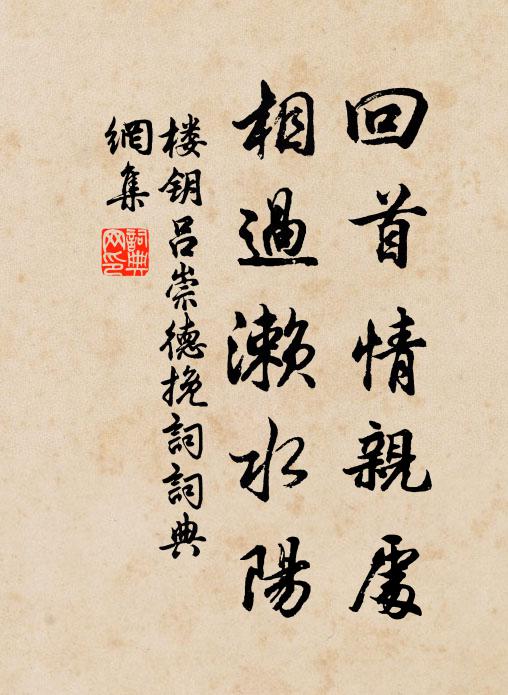 回首情親處
相過濑水陽
楼钥吕崇德挽詞詞典
網集
詞典网印